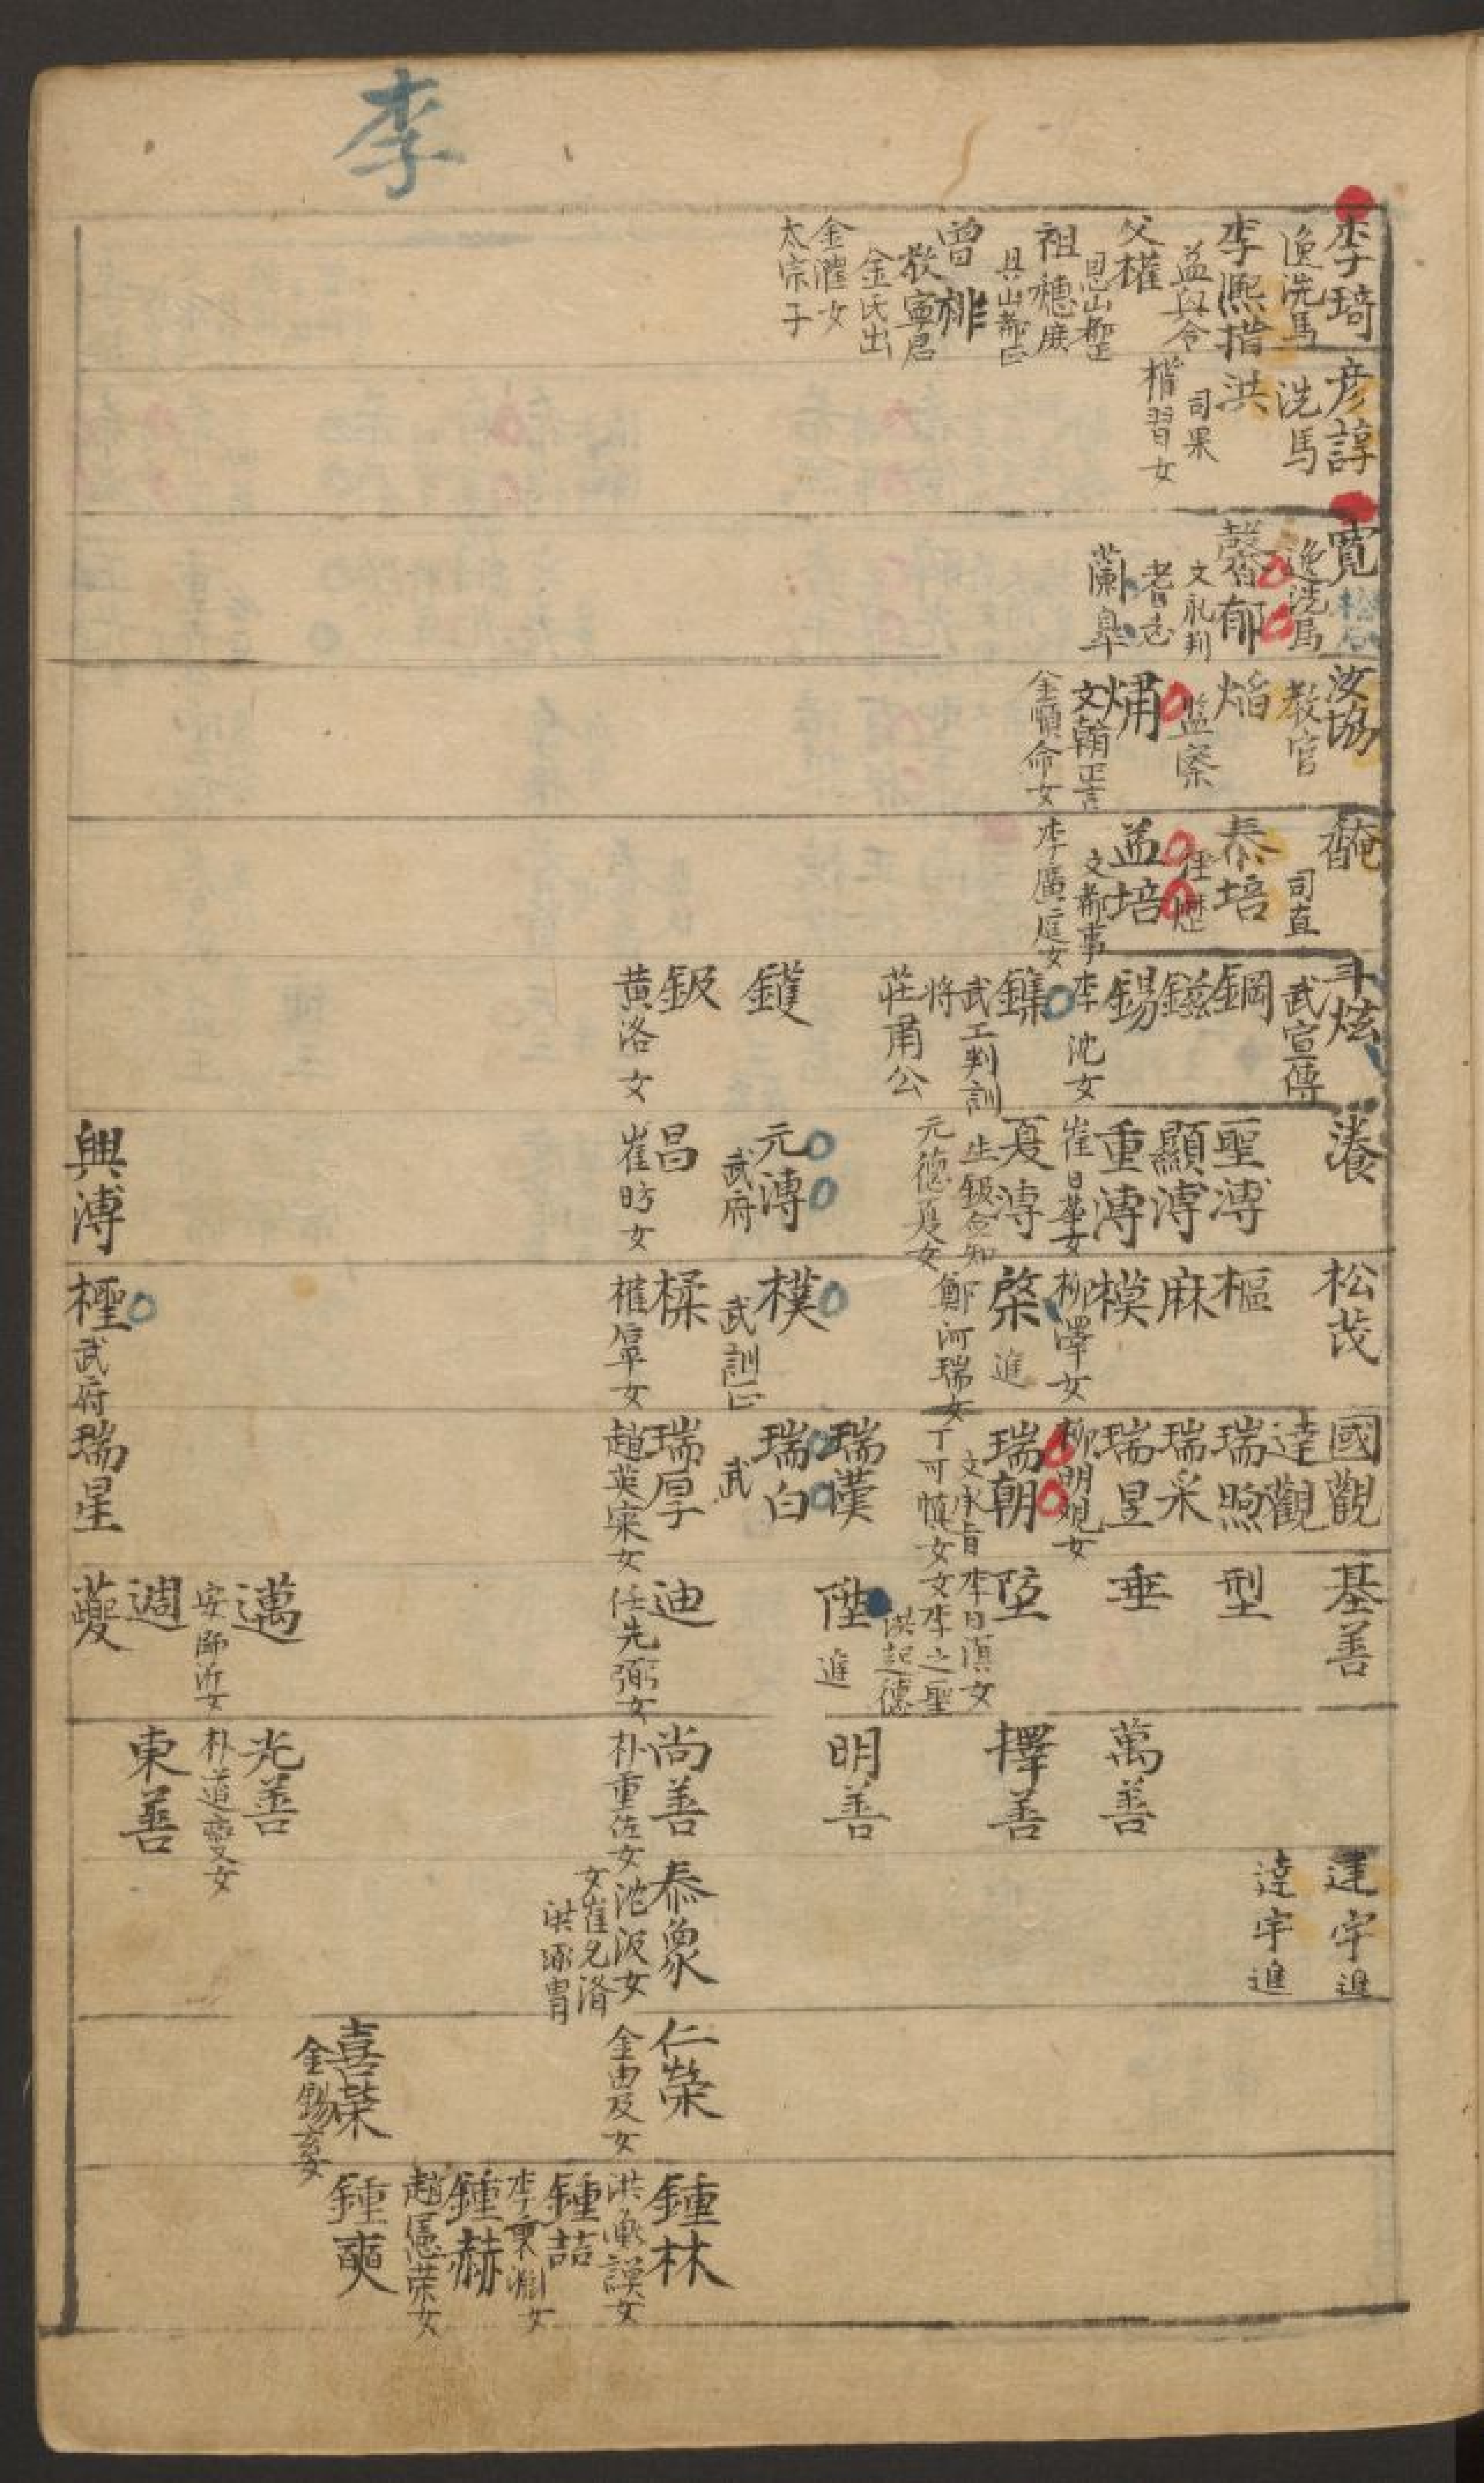 李
李琦
逸洗馬
李熈揩
益興令
父權
恩山都正
祖穗庶
具山都正
曾
敬寧君
金氏出
金灌女
太宗子
彦諄
洗馬
洪
司果
揩習女
寬
松石
逸洗馬
馨郁
文礼判
耆老
蘭皐
汝協
教官
焰
監察
炥
文翰正言
金順命女
馣
司直
泰培
經歷
益培
文都事
李廣庭女
斗炫
武宣傳
鋼
鎡
錫
李沈女
鏶
武工判訓
將
莊甫公
鑊
鈒
黄洛女
濅
聖溥
顯溥
重溥
崔日華女
夏溥
生鈒僉知
元德夏女
元溥
武府
昌
崔昉女
興溥
松茂
樞
麻
模
柳澤女
棨
進
鄭河瑞女
樸
武訓正
樣
權䍒女
㮛
武府
國觀
達觀
瑞煦
瑞采
瑞昱
柳明覌女
瑞朝
文承旨
丁可愼女
瑞漢
瑞白
武
瑞厚
趙英宲女
瑞星
基善
型
垂
㘸
李日滇女
文李之聖
洪起德
陞
進
迪
任先弼女
邁
安師近女
週
蘷
萬善
擇善
明善
尚善
朴重佐女
光善
朴道燮女
東善
建宇進
逵宇進
泰象
沈汲女
女崔允濟
洪琢胄
仁榮
金由及女
喜榮
金錫女
鍾林
洪漸謨女
鍾喆
李衷淵女
鍾赫
趙憲榮女
鍾奭